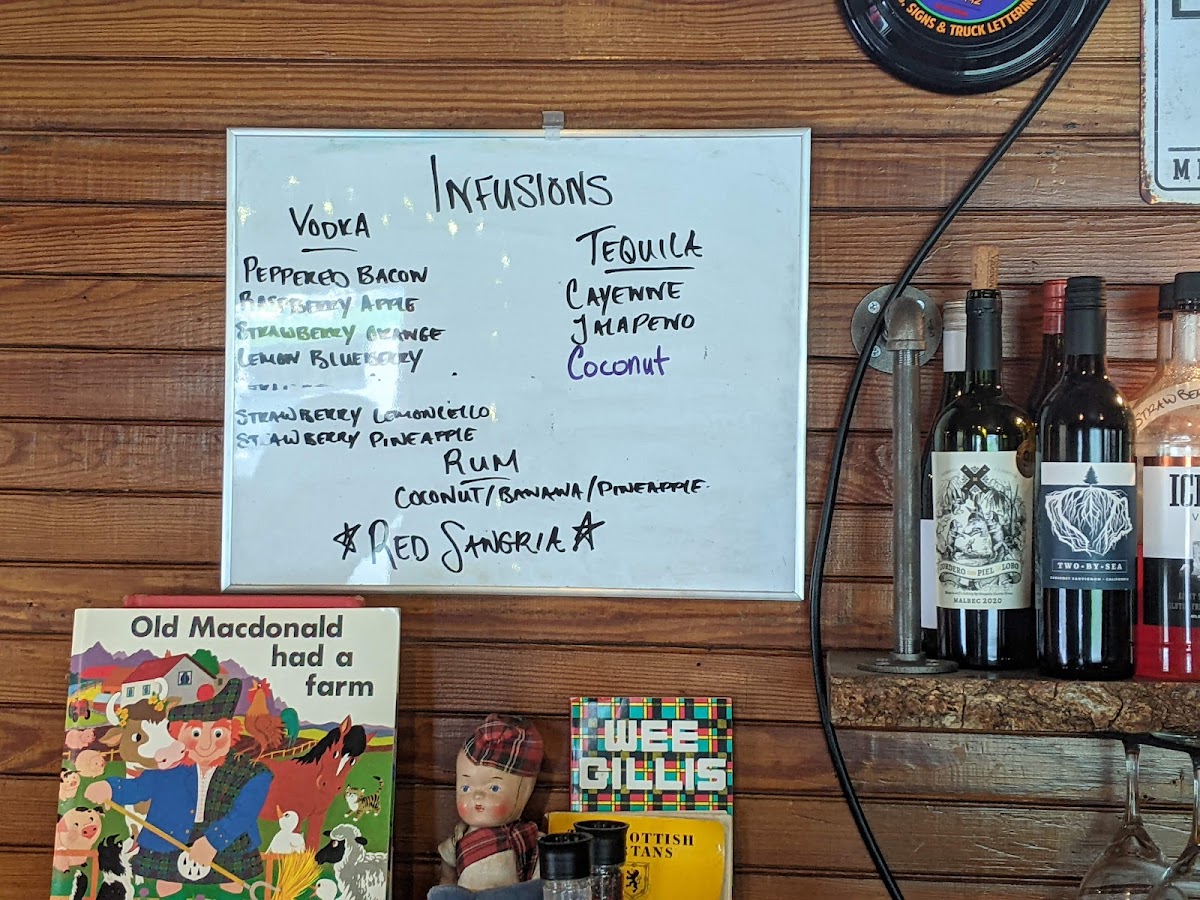 SIGNS & TRUCK LETTERING
INFUSIONS
VODKA
PEPPERED BACON
RASPBERRY APPLE
STRAWBERRY ORANGE
LEMON BLUEBERRY
STRAWBERRY LEMONCELLO
STRAWBERRY PINEAPPLE
TEQUILA
CAYENNE
JALAPENO
Coconut
RUM
COCONUT/BANANA/PINEAPPLE
RED SANGRIA
Old Macdonald
had a
farm
WEE
GILLIS
SCOTTISH
TARTANS
CORDERO CON PIEL DE LOBO
MALBEC 2020
TWO-BY-SEA
CABERNET SAUVIGNON - CALIFORNIA